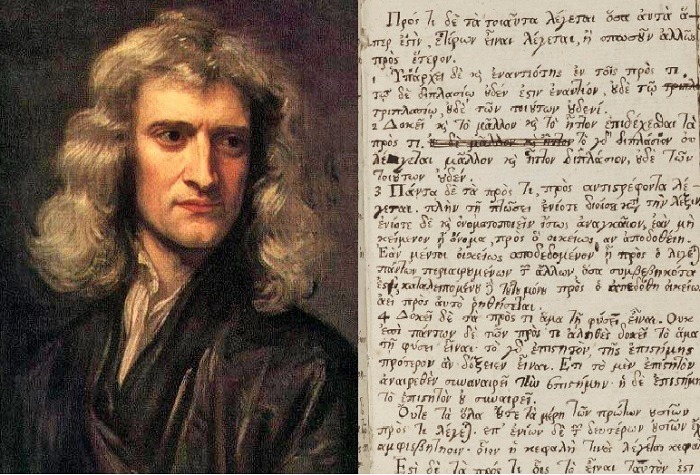 Πρός τι δὲ τὰ τοιαῦτα λέγεται ὅσα αὐτὰ ἅ-
περ ἐστὶν, ἑτέρων εἶναι λέγεται, ἢ ὁπωσοῦν ἄλλως
πρὸς ἕτερον.
1 Ὑπάρχει δὲ ϗ ἐναντιότης ἐν τοῖς πρός τι.
τῷ δὲ διπλασίῳ ȣδέν ἐστιν ἐναντίον, ȣδὲ τῷ
τριπλασίῳ, ȣδὲ τῶν τοιȣτων ȣδενί.
2 Δοκεῖ ϗ τὸ μᾶλλον ϗ τὸ ἧττον ἐπιδέχεσθαι τὰ
πρός τι. τὸ γδ διπλάσιον ȣ
λέγεται μᾶλλον ϗ ἧττον διπλάσιον, ȣδὲ τῶν
τοιȣτων ȣδέν.
3 Πάντα δὲ τὰ πρός τι, πρὸς ἀντιστρέφοντα λέ
γεται. πλὴν τῇ πτώσει ἐνίοτε διοίσει τὴν λέξιν
ἐνίοτε δὲ ϗ ὀνοματοποιεῖν ἴσως ἀναγκαῖον, ἐὰν μὴ
κείμενον ᾖ ὄνομα, πρὸς ὃ οἰκείως ἂν ἀποδοθείη.
Ἐὰν μέντοι οἰκείως ἀποδεδομένον ᾖ πρὸς ὃ λέγε
πάντων περιαιρουμένων τ ἄλλων, ὅσα συμβεβηκότα
ἐστὶ, καταλειπομένȣ τούτȣ μόνȣ πρὸς ὃ ἀπεδόθη οἰκείως
ἀεὶ πρὸς αὐτὸ ῥηθήσεται.
4 Δοκεῖ δὲ τὰ πρός τι ἅμα τῇ φύσει εἶναι. Οὐκ
ἐπὶ πάντων δὲ τῶν πρός τι ἀληθὲς δοκεῖ τὸ ἅμα
τῇ φύσει εἶναι. τὸ γδ ἐπιστητὸν, τῆς ἐπιστήμης
πρότερον ἂν δόξειεν εἶναι. Ἔτι τὸ μὲν ἐπιστητὸν
ἀναιρεθὲν συναναιρεῖ τὴν ἐπιστήμην· ἡ δὲ ἐπιστήμη
τὸ ἐπιστητὸν ȣ συναιρεῖ.
Οὔτε τὰ ὅλα ȣτε τὰ μέρη τῶν πρώτων ȣσιῶν
πρός τι λέγε. ἐπ' ἐνίων δὲ τ δευτέρων ȣσιῶν
ἀμφισβήτησιν. οἷον ἡ κεφαλὴ τινὸς λέγεται κεφαλ
Ἔτι τὰ πρός τι εἶναι ταυτόν ἐστι